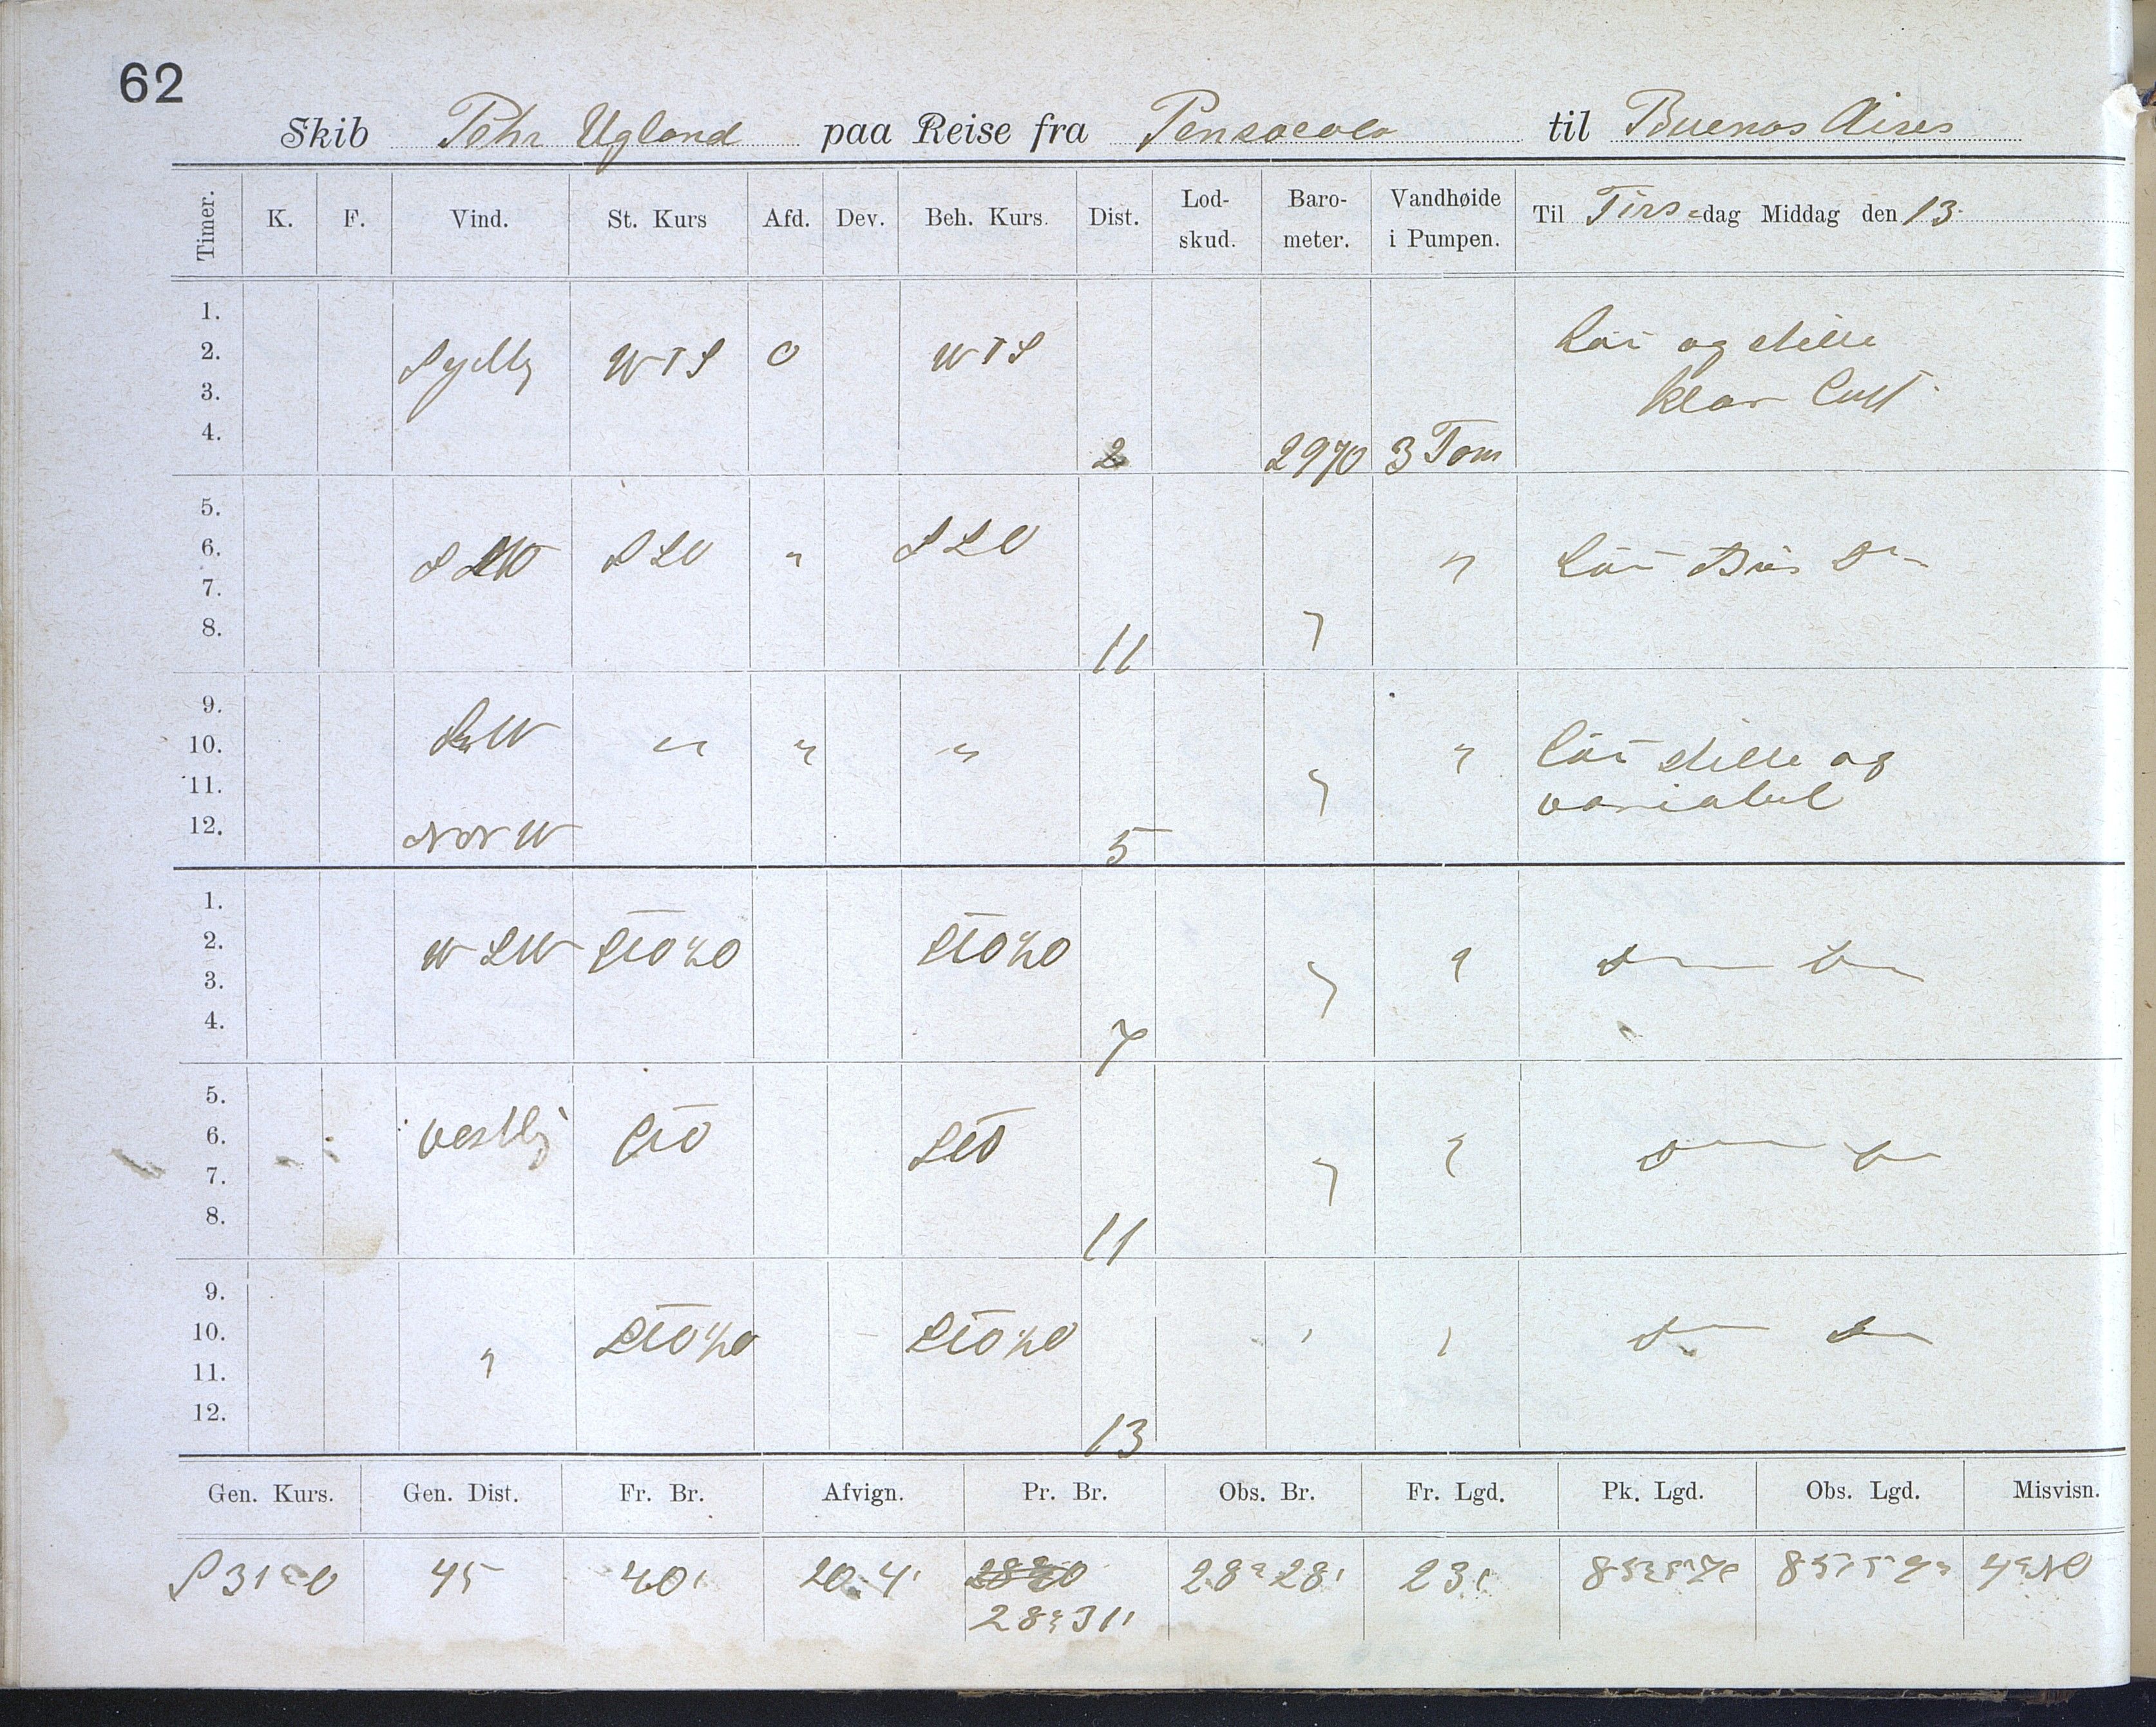 62
Skib Pehr Ugland paa Reise fra Pensacola til Buenos Aires
Timer. K. F. Vind. St. Kurs Afd. Dev. Beh. Kurs. Dist. Lod-skud. Baro-meter. Vandhøide i Pumpen. Til Tirsdag Middag den 13.
1.
2. Sydlig WTS 0 WTS Lär og stille
3. klar Luft
4. 2 2970 3 Tom
5.
6. SSW SSO " SSO " Lär Bris Do
7.
8. 11 "
9.
10. SW " " " " Lär stille og
11. " variabel
12. NNW 5
1.
2. WSW " Do Do
3. "
4. 7
5.
6. vestlig StO StO " Do Do
7. "
8. 11
9.
10. " " Do Do
11. "
12. 13
Gen. Kurs. Gen. Dist. Fr. Br. Afvign. Pr. Br. Obs. Br. Fr. Lgd. Pk. Lgd. Obs. Lgd. Misvisn.
S 31° O 45 40' 20.4' 28° 28' 23'
28° 31'